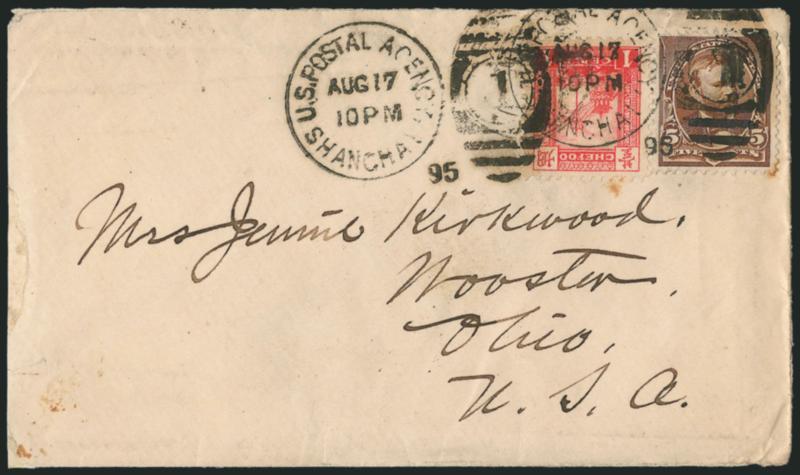 U.S. POSTAL AGENCY
AUG 17
10 PM
SHANGHAI
95
1
U.S. POSTAL AGENCY
AUG 17
10 PM
SHANGHAI
95
1
1
CHEFOO
5 5
Mrs Jennie Kirkwood.
Wooster,
Ohio,
U. S. A.